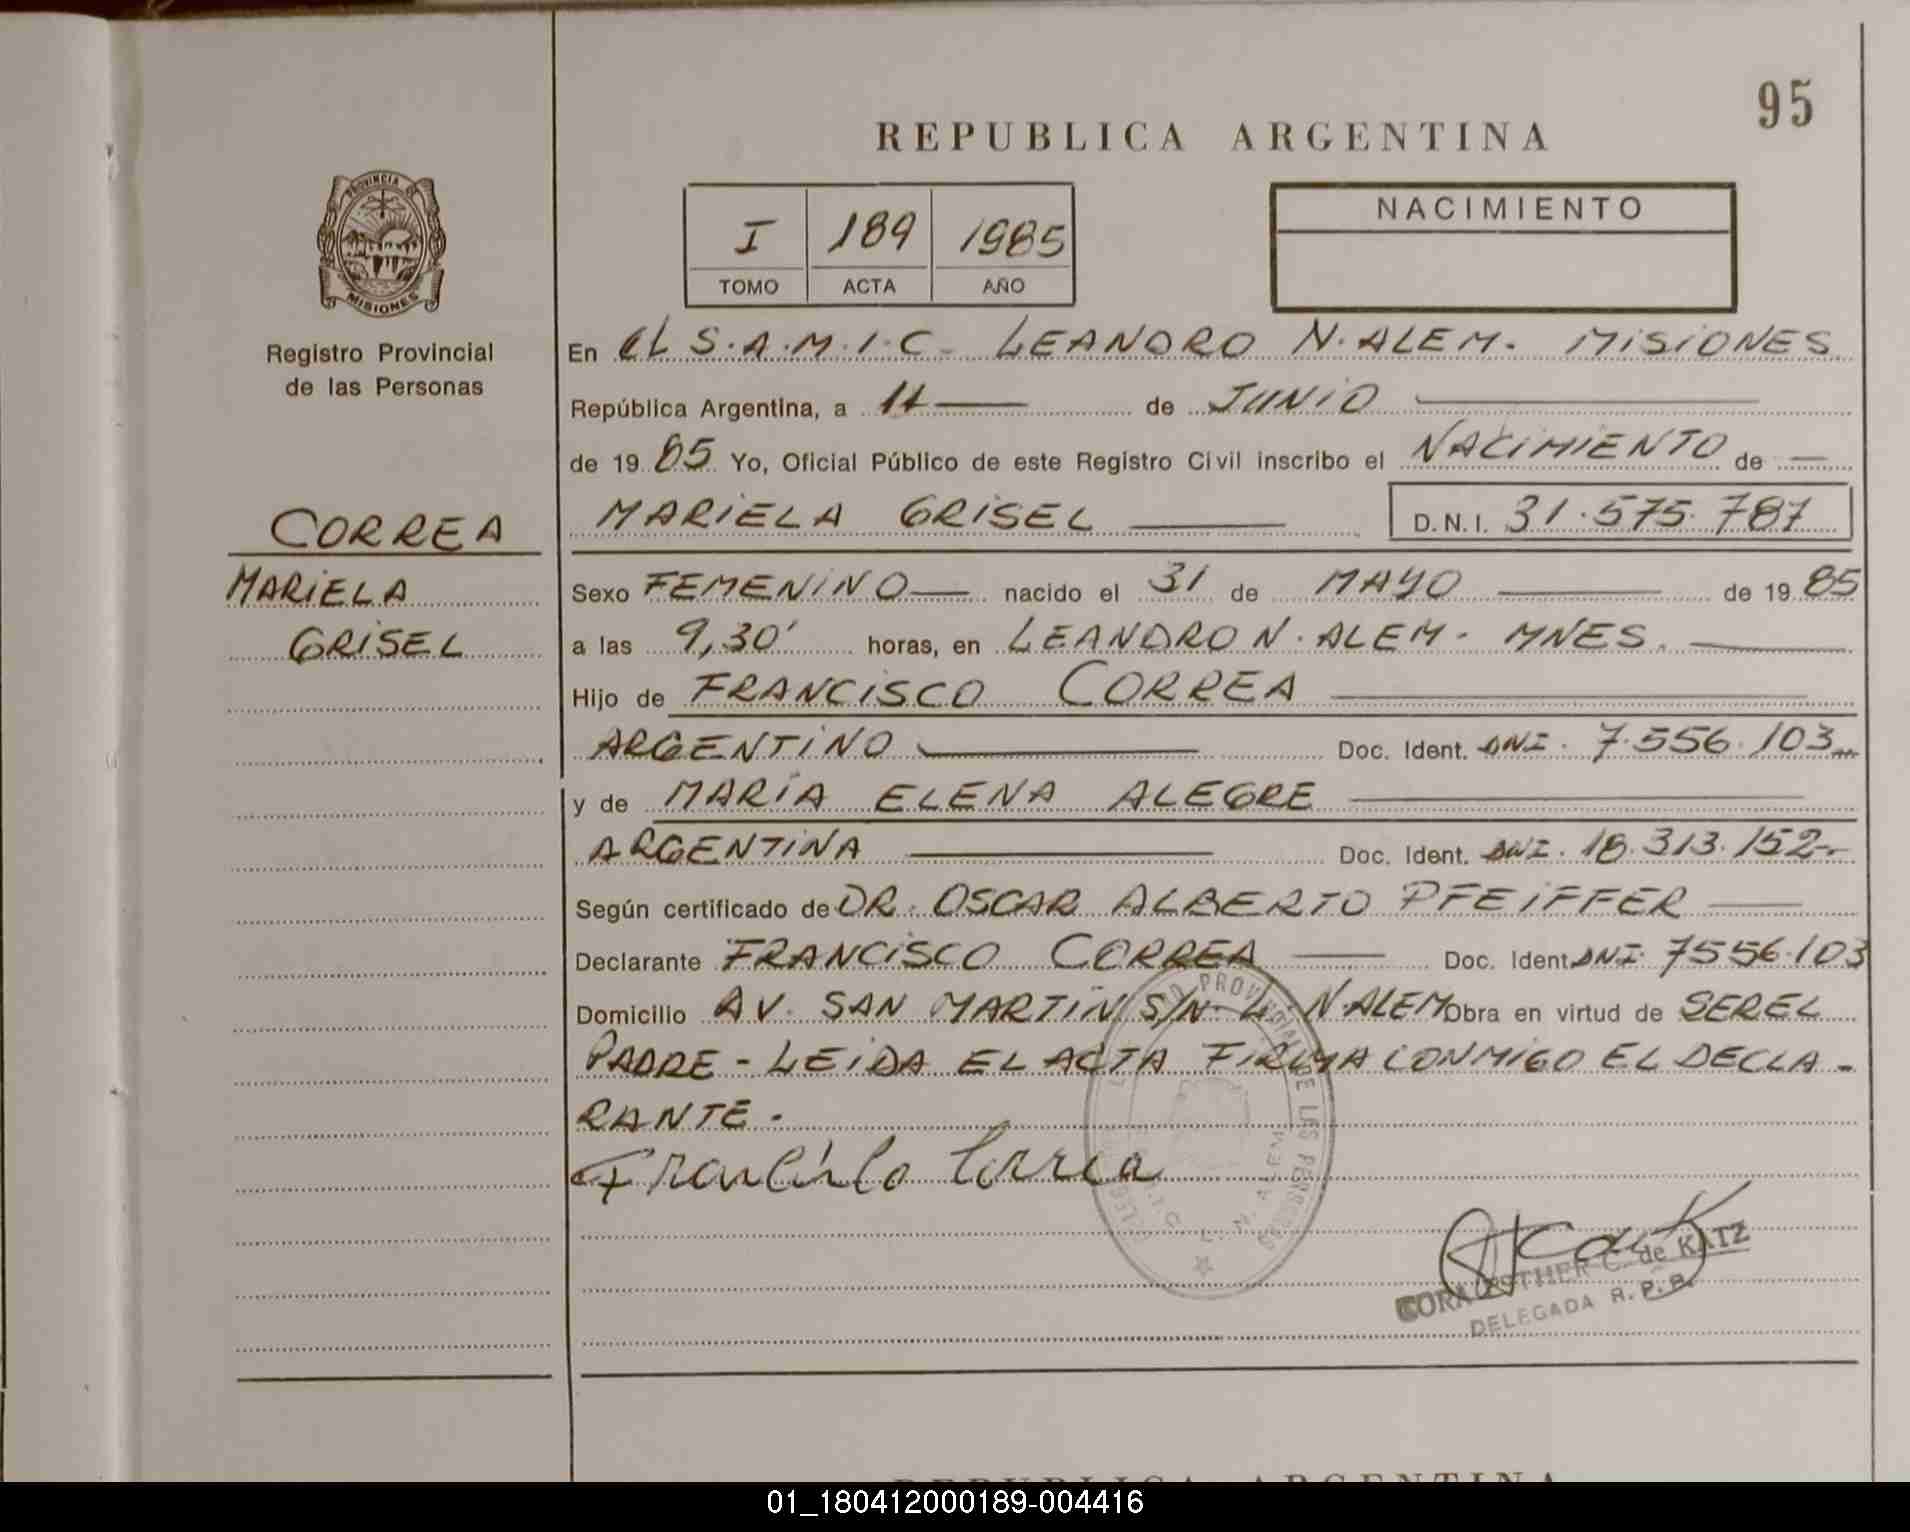 95
REPUBLICA ARGENTINA
PROVINCIA DE
MISIONES
Registro Provincial
de las Personas
I 189 1985
TOMO ACTA AÑO
NACIMIENTO
En EL S.A.M.I.C- LEANDRO N. ALEM. MISIONES
República Argentina, a 11 de JUNIO
de 1985 Yo, Oficial Público de este Registro Civil inscribo el NACIMIENTO de
MARIELA GRISEL D.N.I. 31.575.787
CORREA
MARIELA
GRISEL
Sexo FEMENINO nacido el 31 de MAYO de 1985
a las 9,30' horas, en LEANDRO N. ALEM. MNES.
Hijo de FRANCISCO CORREA
ARGENTINO Doc. Ident. DNI. 7.556.103
y de MARIA ELENA ALEGRE
ARGENTINA Doc. Ident. DNI. 18.313.152.-
Según certificado de DR. OSCAR ALBERTO PFEIFFER
Declarante FRANCISCO CORREA Doc. Ident. DNI. 7556.103
Domicilio AV. SAN MARTIN S/N- L. N. ALEM Obra en virtud de SER EL
PADRE - LEIDA EL ACTA FIRMA CONMIGO EL DECLA-
RANTE.
Francisco Correa
PROVINCIAL DE LAS PERSONAS
L. N. ALEM
CORA ESTHER C. de KATZ
DELEGADA R.P.P.
REPUBLICA ARGENTINA
01_180412000189-004416